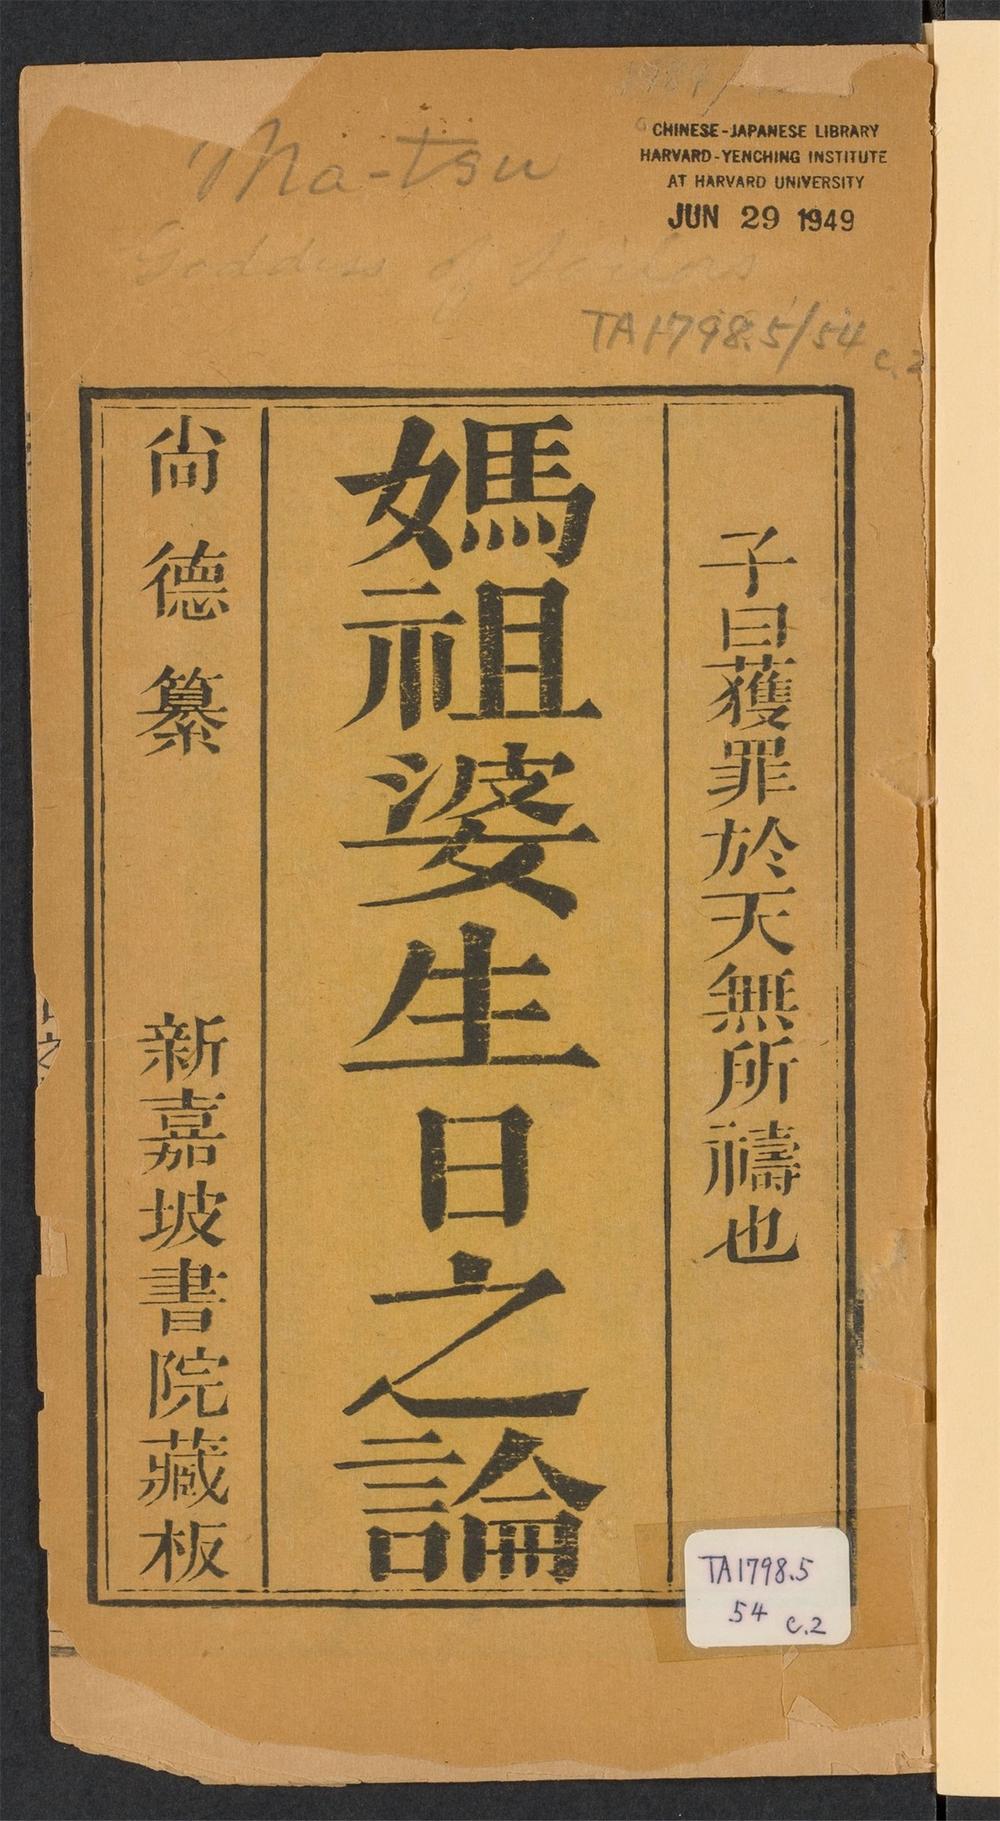 Ma-tsu
CHINESE-JAPANESE LIBRARY
HARVARD-YENCHING INSTITUTE
AT HARVARD UNIVERSITY
JUN 29 1949
Goddess of Sailors
TA1798.5/54
c.2
子曰獲罪於天無所禱也
媽祖婆生日之論
尙德纂
新嘉坡書院藏板
TA1798.5
54 c.2